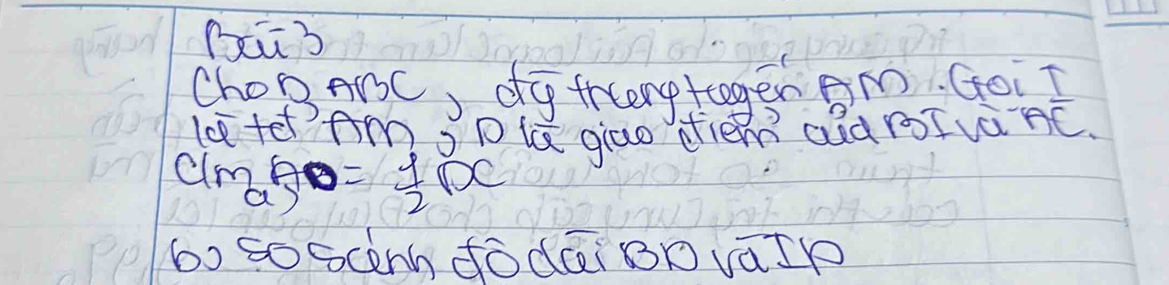 Bài 3
Cho Δ ABC, đg trung tuyến AM. Gọi I
là tđ AM, D là giao điểm của BI và AC.
C/m a) AD = 1/2 DC
b) so sánh độ dài BD và ID